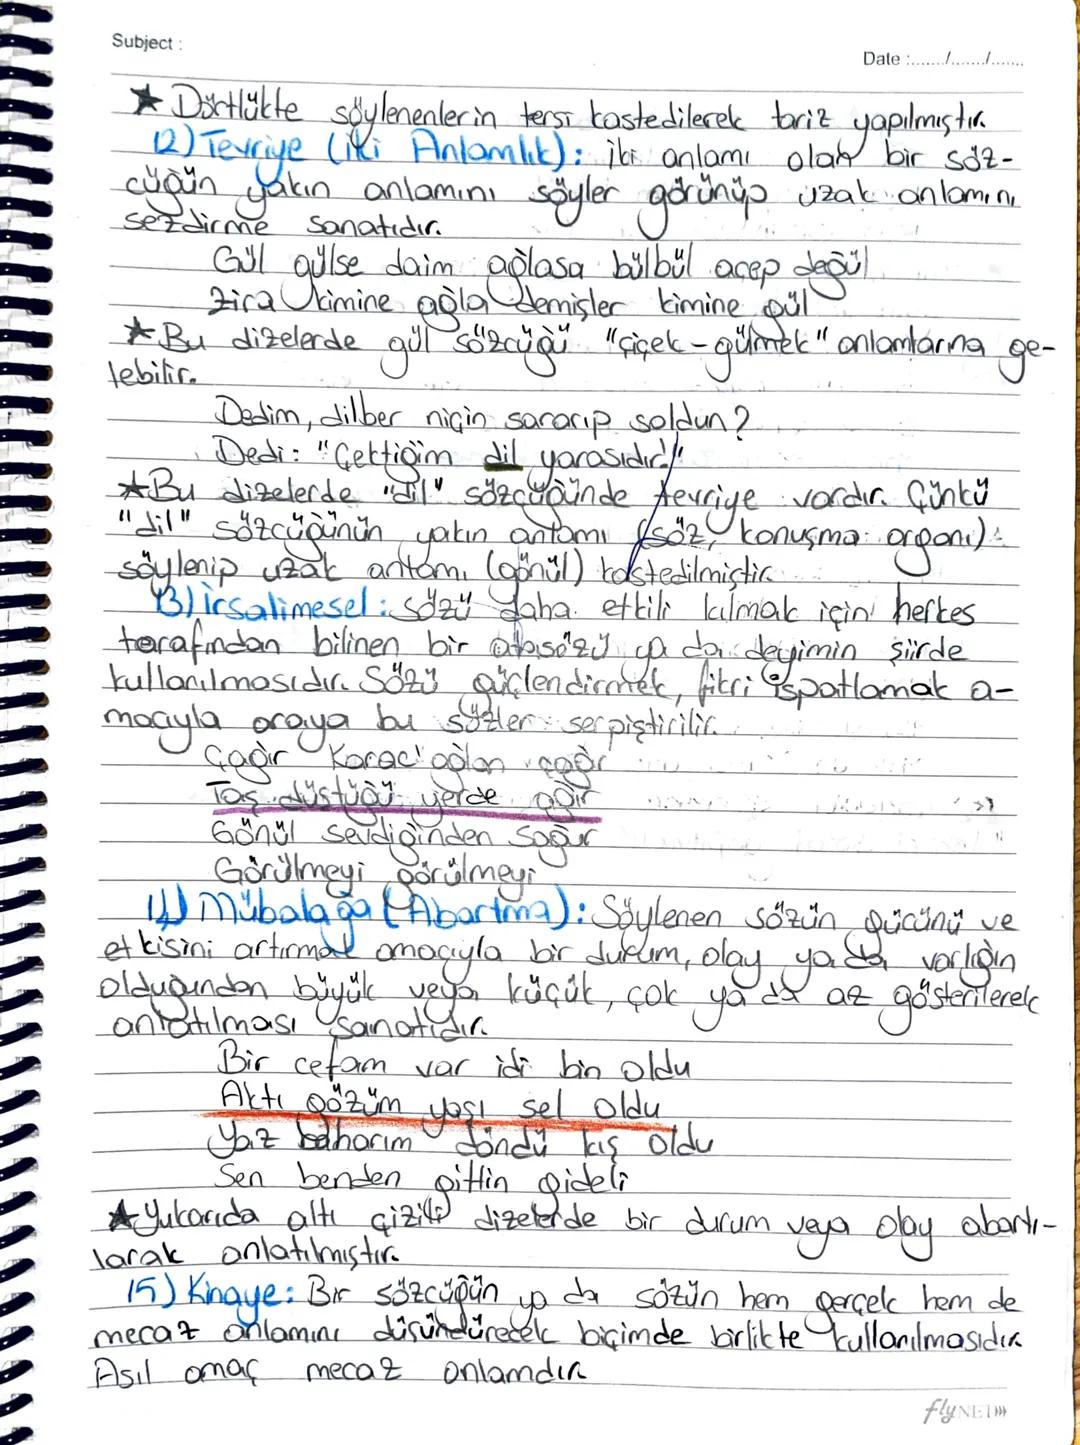 Subject :
Date :......./......./.......
★ Dörtlükte söylenenlerin tersi kastedilerek tariz yapılmıştır.
12) Tevriye (İki Anlamlılık): İki anlamı olan bir söz-
cüğün yakın anlamını söyler görünüp uzak anlamını
sezdirme sanatıdır.
Gül gülse daim ağlasa bülbül acep değül
Zira kimine ağla demişler kimine gül
★ Bu dizelerde gül sözcüğü "çiçek - gülmek" anlamlarına ge-
lebilir.
Dedim, dilber niçin sararıp soldun?
Dedi: "Çektiğim dil yarasıdır."
★ Bu dizelerde "dil" sözcüğünde tevriye vardır. Çünkü
"dil" sözcüğünün yakın anlamı (söz, konuşma organı)
söylenip uzak anlamı (gönül) kastedilmiştir.
13) İrsalimesel: Sözü daha etkili kılmak için herkes
tarafından bilinen bir atasözü ya da deyimin şiirde
kullanılmasıdır. Sözü güçlendirmek, fikri ispatlamak a-
macıyla araya bu sözler serpiştirilir.
Çağır Karac'oğlan çağır
Taş düştüğü yerde ağır
Gönül sevdiğinden soğur
Görülmeyi görülmeyi
14) Mübalağa (Abartma): Söylenen sözün gücünü ve
etkisini artırmak amacıyla bir durum, olay ya da varlığın
olduğundan büyük veya küçük, çok ya da az gösterilerek
anlatılması sanatıdır.
Bir cefam var idi bin oldu
Aktı gözüm yaşı sel oldu
Yaz baharım döndü kış oldu
Sen benden gittin gideli
★ Yukarıda altı çizili dizelerde bir durum veya olay abartı-
larak anlatılmıştır.
15) Kinaye: Bir sözcüğün ya da sözün hem gerçek hem de
mecaz anlamını düşündürecek biçimde birlikte kullanılmasıdır.
Asıl amaç mecaz anlamdır.
flyNET